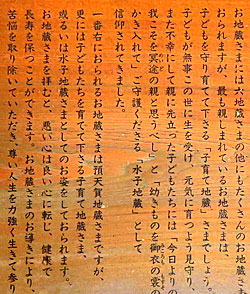 お地蔵さまには六地蔵さまの他にもたくさんのお地蔵さまが
おられますが、最も親しまれているお地蔵さまは
子どもを守り育てて下さる「子育て地蔵」さまでしょう。
子どもが無事にこの世に生を受け、元気に育つよう見守り、
また不幸にして親に先立った子どもたちには「今日よりの
我こそを冥途の親と思うべし」と、幼きものを御衣の裳の
かき入れて、ご守護くださる「水子地蔵」として
信仰されてきました。
一番右におられるお地蔵さまは預天賀地蔵さまですが、
更には子どもたちを育てて下さる子育て地蔵さま、
或るいは水子地蔵さまとしてのお姿をしておられます。
お地蔵さまを拝むと、悪い心は良い心に転じ、健康で
長寿を保つことができます。お地蔵さまのお導きにより、
苦悩を取り除いていただき、尊い人生を力強く生きて参り